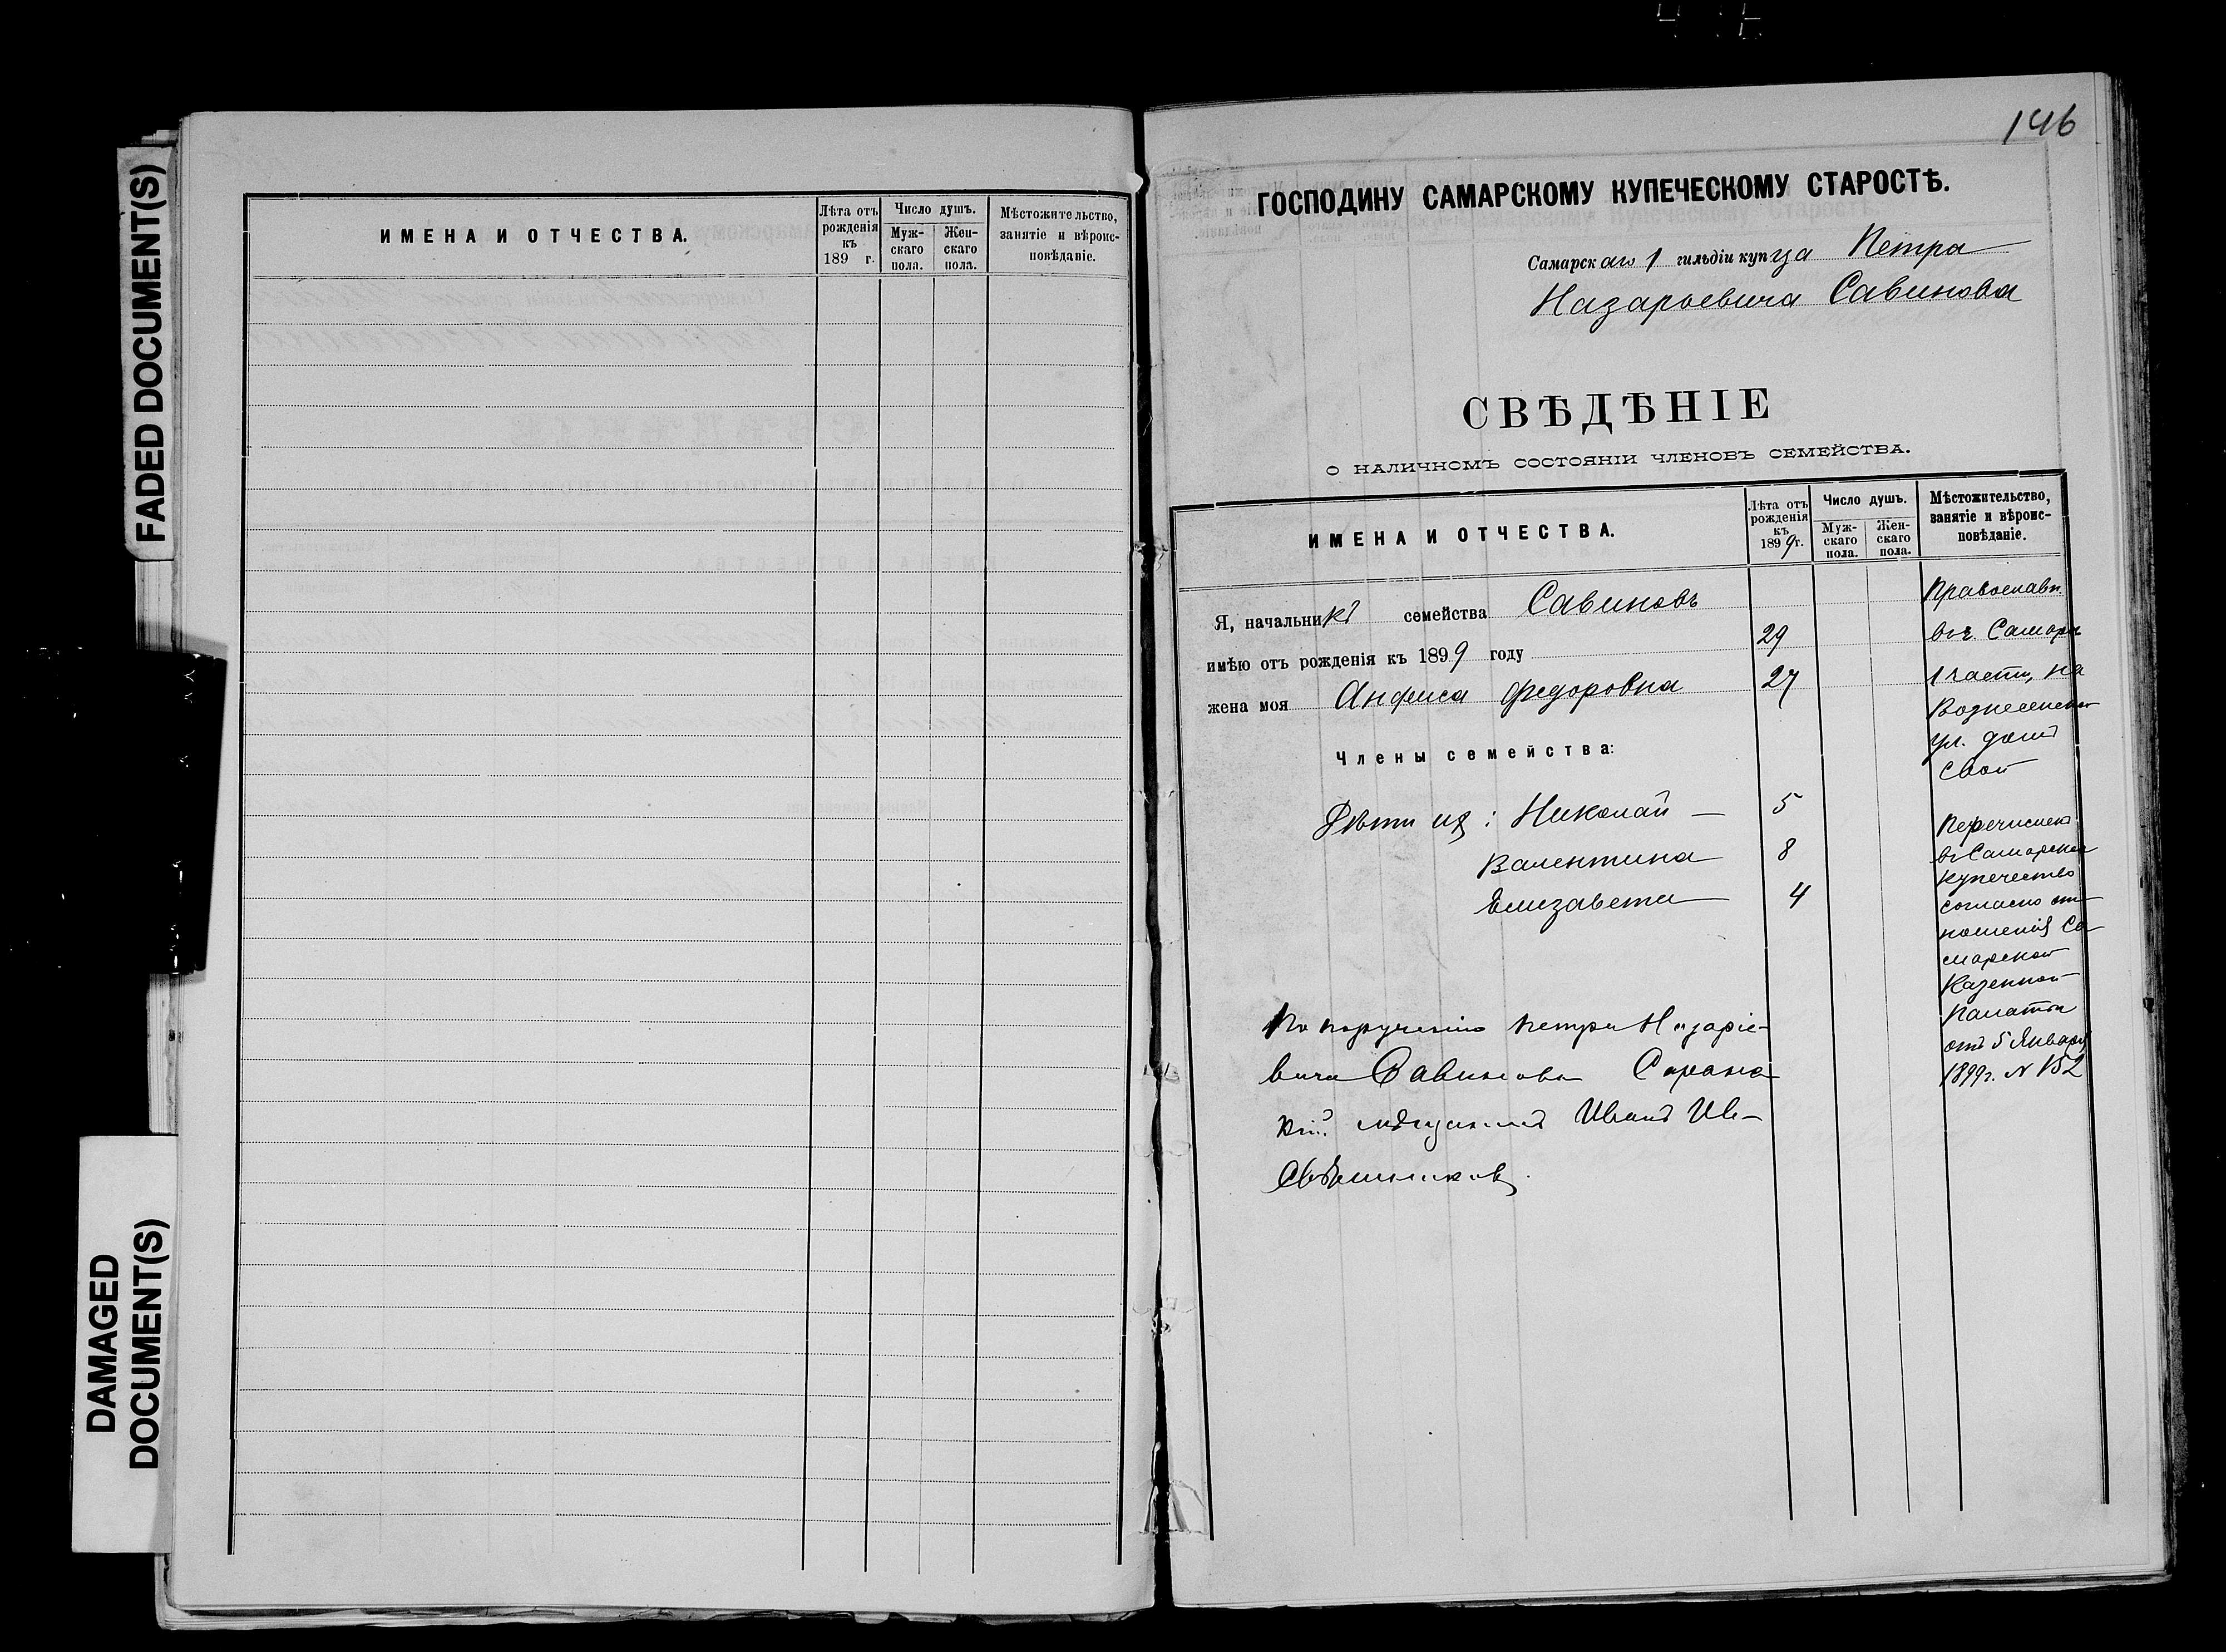 FADED DOCUMENT(S)
DAMAGED
DOCUMENT(S)
ИМЕНА И ОТЧЕСТВА.
Лѣта отъ рожденія къ 189 г.
Число душъ.
Муж-скаго пола.
Жен-скаго пола.
Мѣстожительство, занятіе и вѣроис-повѣданіе.
146
ГОСПОДИНУ САМАРСКОМУ КУПЕЧЕСКОМУ СТАРОСТѢ.
Самарскаго 1 гильдіи купца Петра
Назарьевича Савинова
СВѢДѢНІЕ
О НАЛИЧНОМЪ СОСТОЯНІИ ЧЛЕНОВЪ СЕМЕЙСТВА.
ИМЕНА И ОТЧЕСТВА.
Лѣта отъ рожденія къ 1899г.
Число душъ.
Муж-скаго пола.
Жен-скаго пола.
Мѣстожительство, занятіе и вѣроис-повѣданіе.
Я, начальникъ семейства Савиновъ
имѣю отъ рожденія къ 1899 году 29
жена моя Анфиса Федоровна 27
Члены семейства:
Дѣти их: Николай — 5
Валентина 8
Елизавета 4
Православн.
въ г. Самарѣ
1 части, на
Вознесенской
ул. домъ
свой
Перечисленъ
въ Самарское
купечество
согласно от-
ношенія Са-
марской
Казенной
Палаты
отъ 5 Января
1899г. № 152
По порученію Петра Назаріе-
вича Савинова
мѣщанинъ Иванъ Ив.